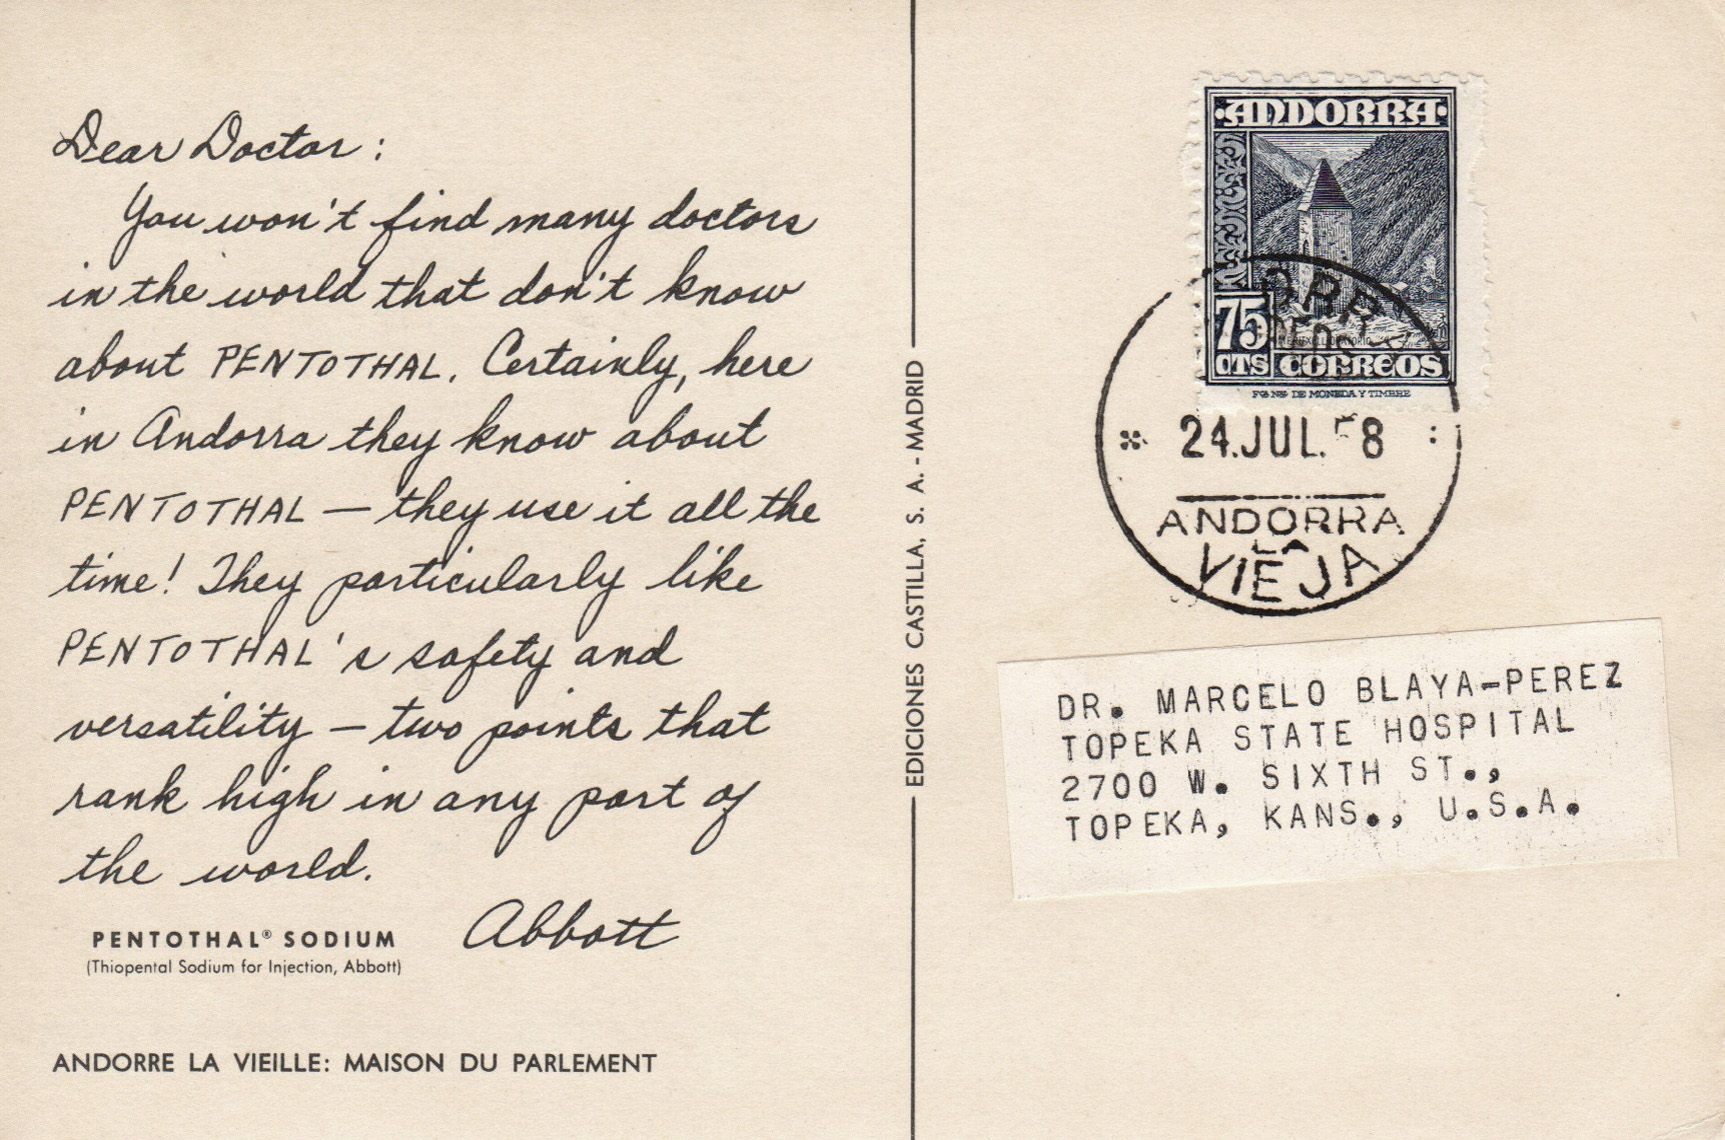 Dear Doctor:
You won't find many doctors
in the world that don't know
about PENTOTHAL. Certainly, here
in Andorra they know about
PENTOTHAL — they use it all the
time! They particularly like
PENTOTHAL's safety and
versatility — two points that
rank high in any part of
the world.
Abbott
PENTOTHAL® SODIUM
(Thiopental Sodium for Injection, Abbott)
ANDORRE LA VIEILLE: MAISON DU PARLEMENT
EDICIONES CASTILLA, S. A. - MADRID
·ANDORRA·
75
CTS CORREOS
MERITXELL ORATORIO
24.JUL.58
ANDORRA
LA
VIEJA
DR. MARCELO BLAYA-PEREZ
TOPEKA STATE HOSPITAL
2700 W. SIXTH ST.,
TOPEKA, KANS., U.S.A.